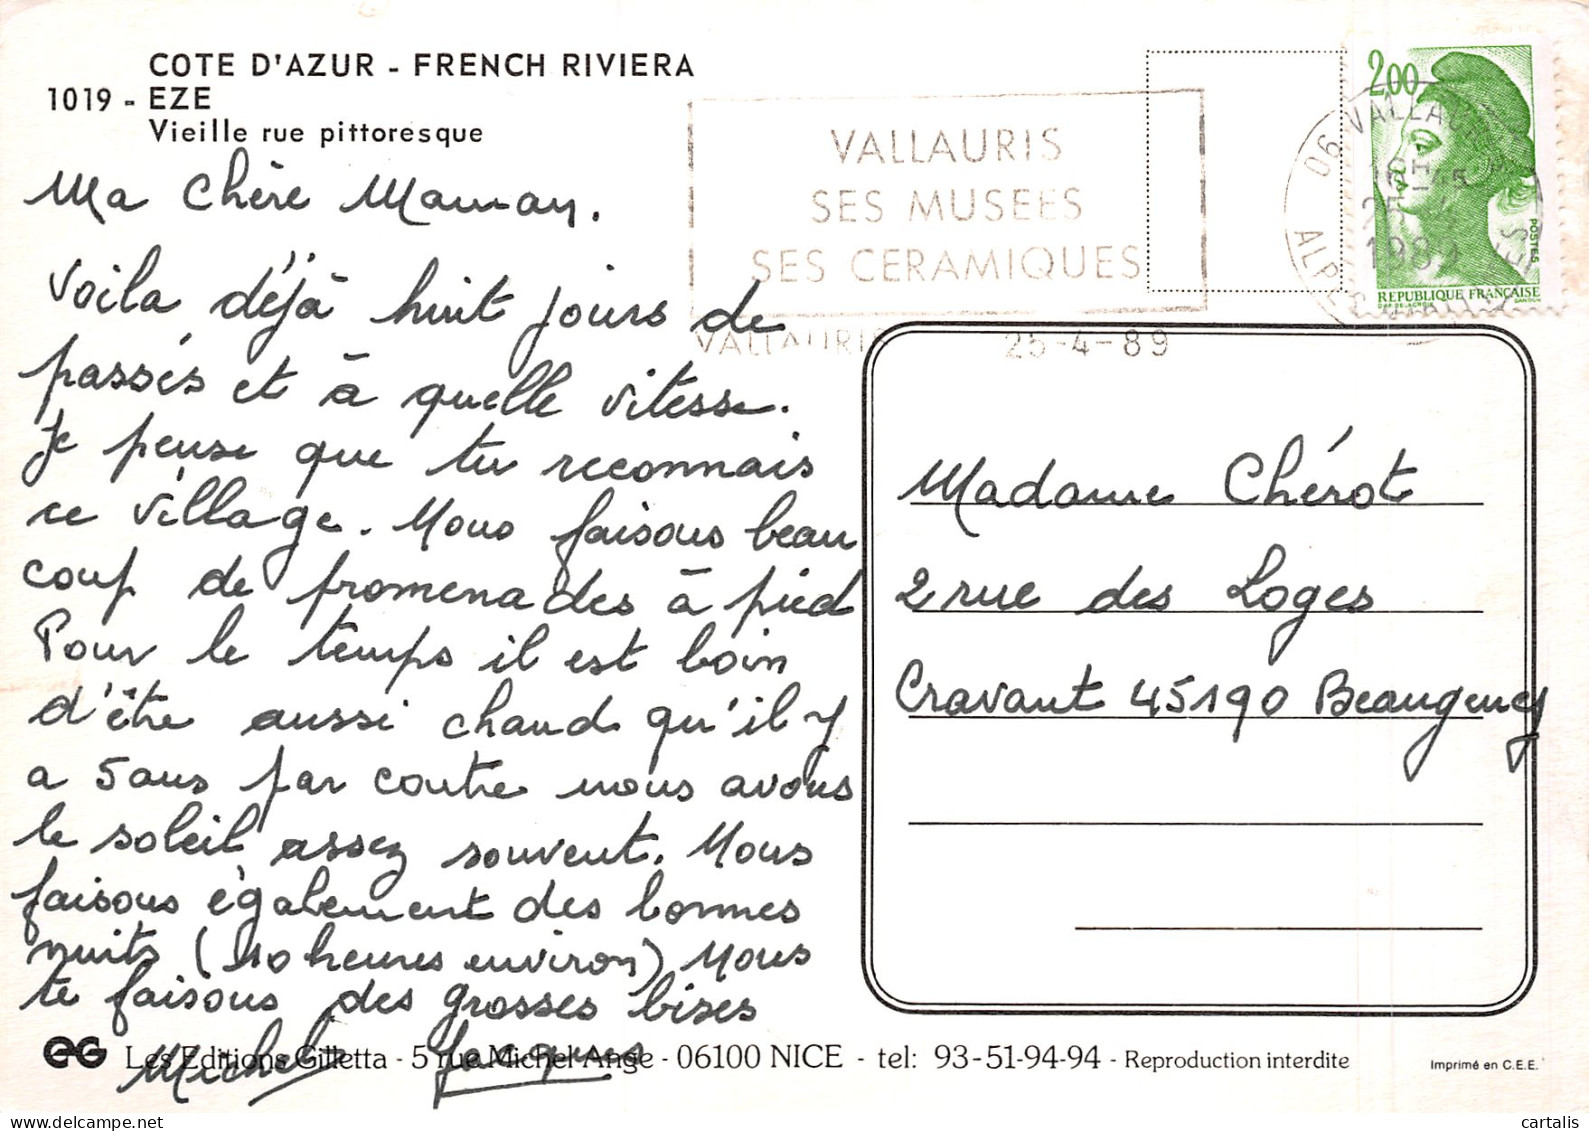 COTE D'AZUR - FRENCH RIVIERA
1019 - EZE
Vieille rue pittoresque
Ma Chère Maman.
Voila déjà huit jours de
passés et à quelle vitesse.
Je pense que tu reconnais
ce village. Nous faisons beau
coup de promenades à pied
Pour le temps il est loin
d'être aussi chaud qu'il y
a 5 ans par contre nous avons
le soleil assez souvent. Nous
faisons également des bonnes
nuits (10 heures environ) Nous
te faisons des grosses bises
Jacques
VALLAURIS
SES MUSEES
SES CERAMIQUES
VALLAURIS 25-4-89
06 VALLAURIS
1989
2,00
POSTES
REPUBLIQUE FRANÇAISE
Madame Chérot
2 rue des Loges
Cravant 45190 Beaugency
EG Les Editions Gilletta - 5 rue Michel-Ange - 06100 NICE - tel: 93-51-94-94 - Reproduction interdite
Imprimé en C.E.E.
cartalis